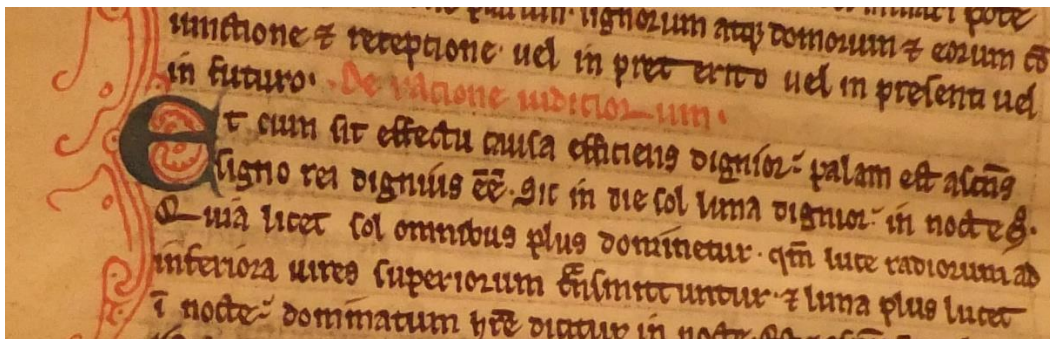 signorum atq domorum ⁊ eorum cō
iunctione ⁊ receptione· uel in pret erito uel in presenti uel
in futuro· ·De racione iudicior um·
Et cum sit effectu causa efficiens dignior·̄ palam est ascēns
signo rei dignius ēē· Sic in die sol luna dignior·̄ in nocte
Quia licet sol omnibus plus dominetur· qm̄ luce radiorum ad
inferiora uires superiorum tn̄smittuntur· ⁊ luna plus lucet
ī nocte·̄ dominatum hr̄e dicitur in nocte·